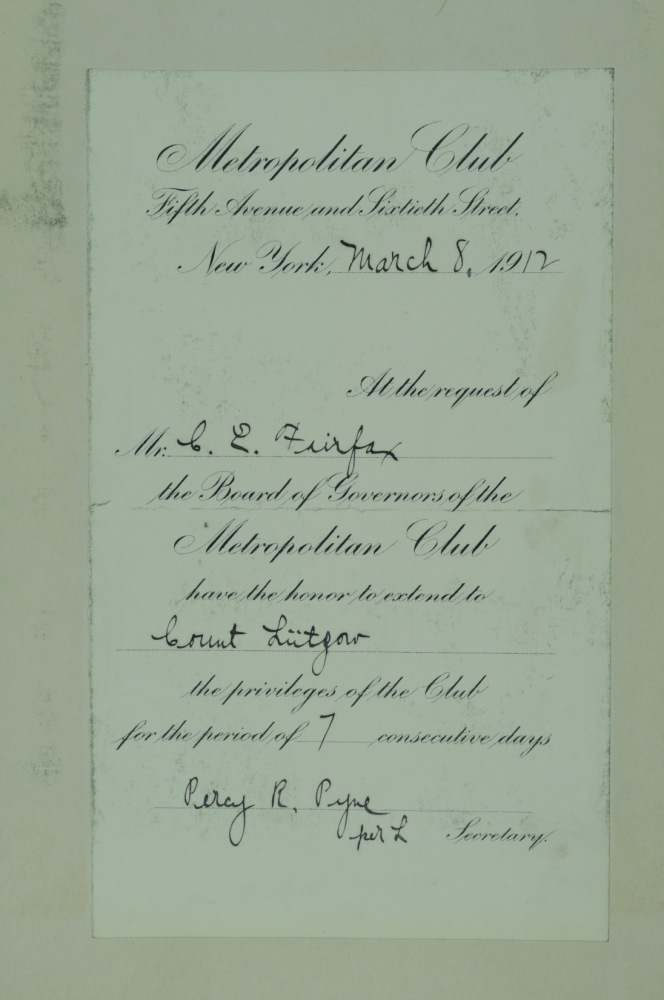 Metropolitan Club
Fifth Avenue and Sixtieth Street.
New York, March 8, 1912
At the request of
Mr. C. L. Fairfax
the Board of Governors of the
Metropolitan Club
have the honor to extend to
Count Lütgow
the privileges of the Club
for the period of 7 consecutive days
Percy R. Pyne
per L Secretary.